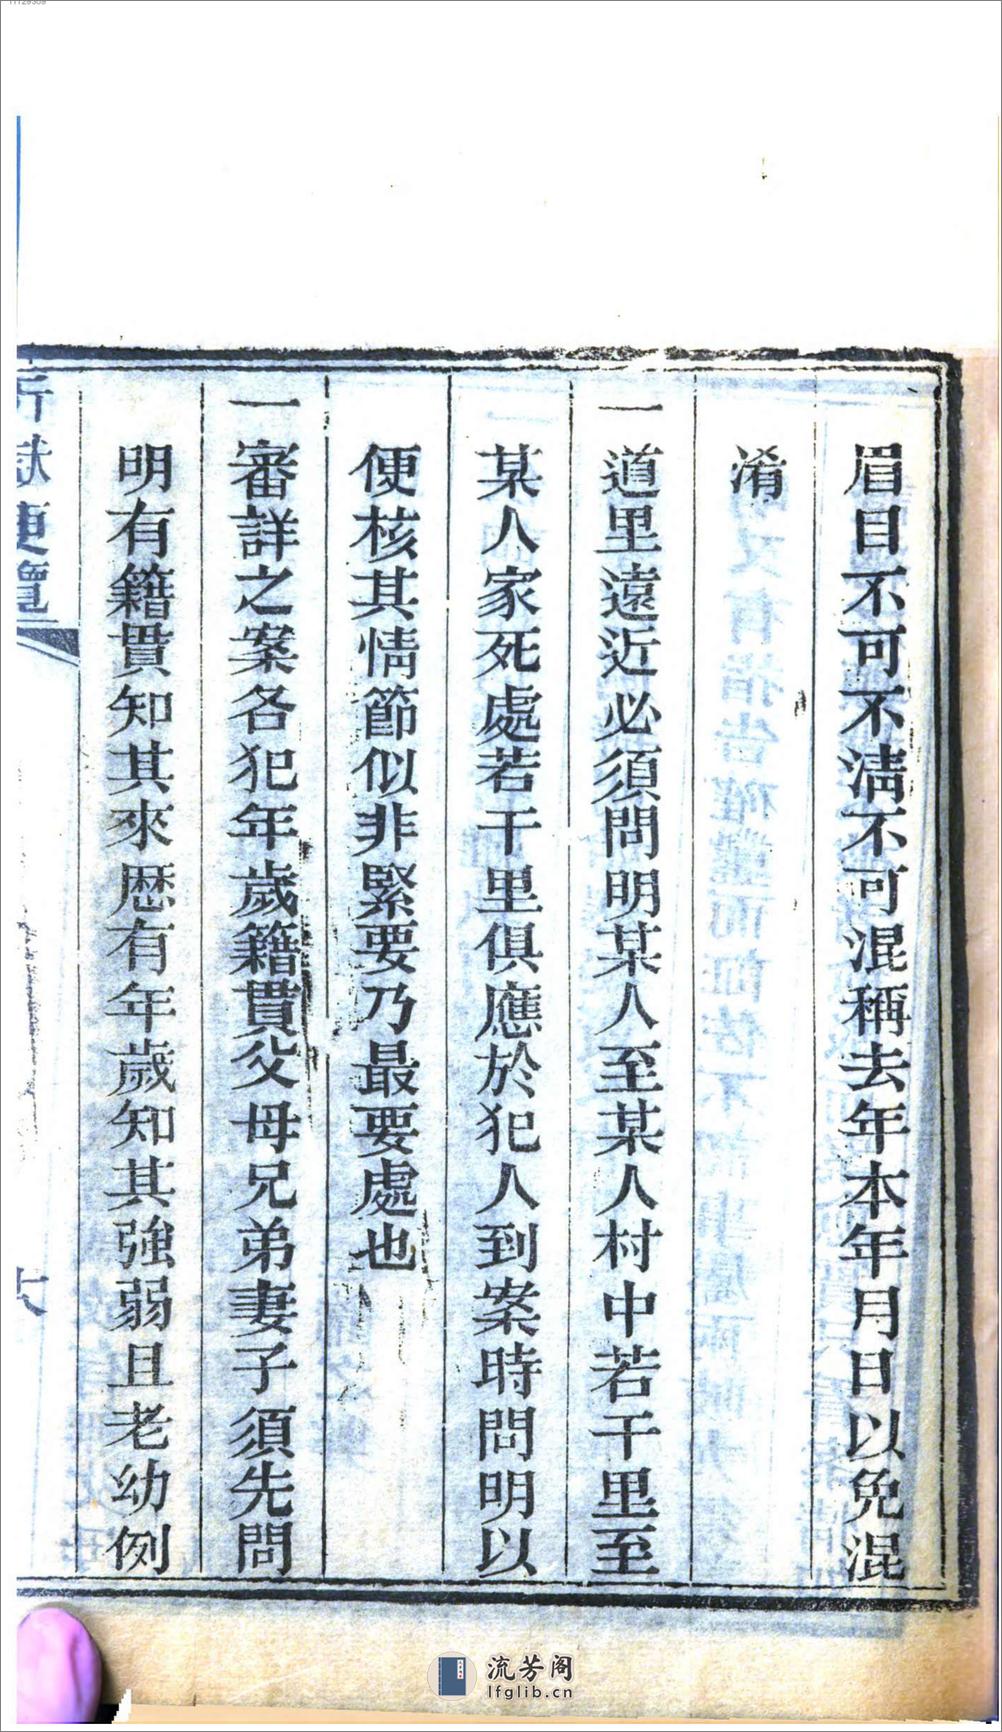 眉目不可不淸不可混稱去年本年月日以免混
淆
一道里遠近必須問明某人至某人村中若干里至
某人家死處若干里俱應於犯人到案時問明以
便核其情節似非緊要乃最要處也
一審詳之案各犯年歲籍貫父母兄弟妻子須先問
明有籍貫知其來歷有年歲知其強弱且老幼例
折獄便覽
流芳阁
lfglib.cn